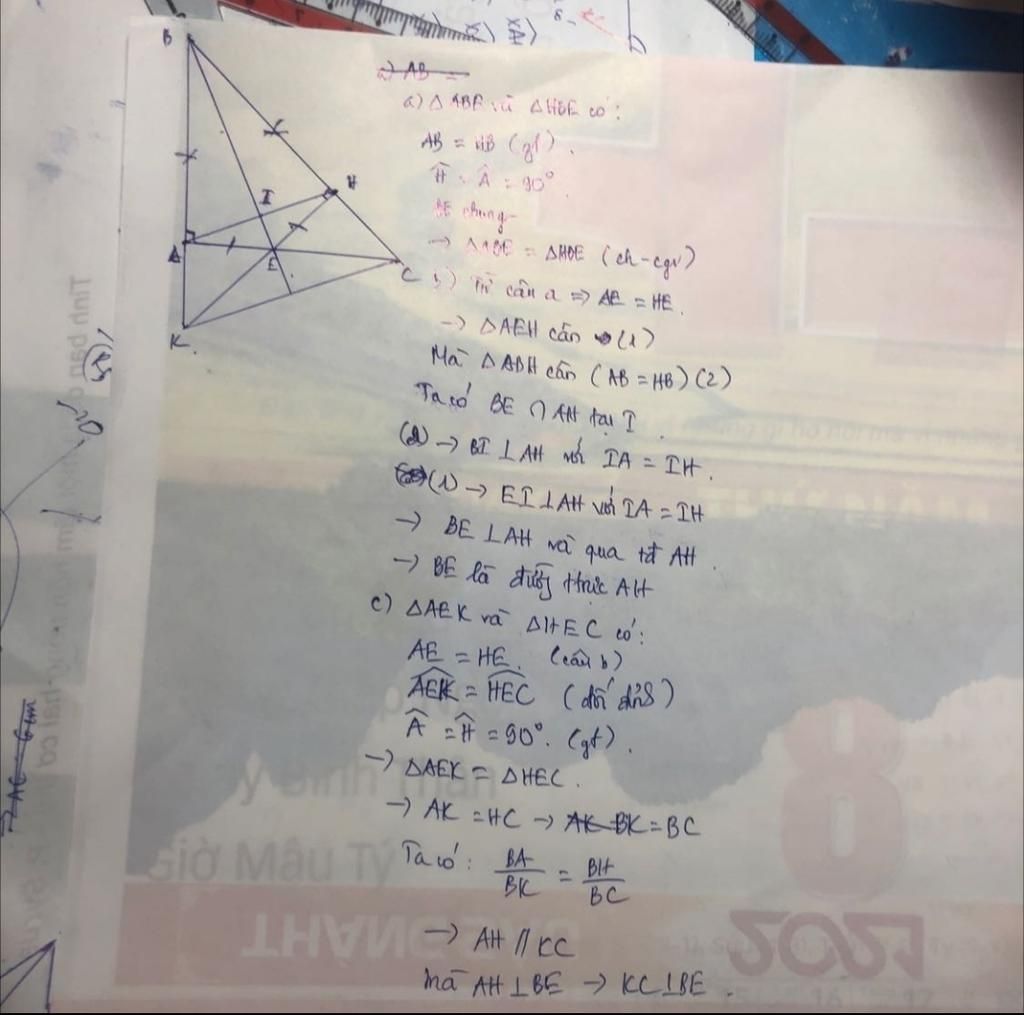 B
H
I
A
E
C
K.
a) AB =
a) △ABE và △HBE có:
AB = HB (gt).
Ĥ = Â = 90°
BE chung
→ △ABE = △HBE (ch-cgv)
b) Từ câu a => AE = HE.
→ △AEH cân (1)
Mà △ABH cân (AB = HB) (2)
Ta có BE ∩ AH tại I.
(2) → BI ⊥ AH với IA = IH.
(1) → EI ⊥ AH với IA = IH
→ BE ⊥ AH và qua tđ AH.
→ BE là đường trực AH
c) △AEK và △HEC có:
AE = HE. (câu b)
AEK = HEC (đối đỉnh)
Â = Ĥ = 90°. (gt).
→ △AEK = △HEC.
→ AK = HC → AK BK = BC
Ta có: BA/BK = BH/BC
→ AH // KC
mà AH ⊥ BE → KC ⊥ BE.
→ AC = 6cm
Giờ Mậu Tý
THÁNG
8
2021